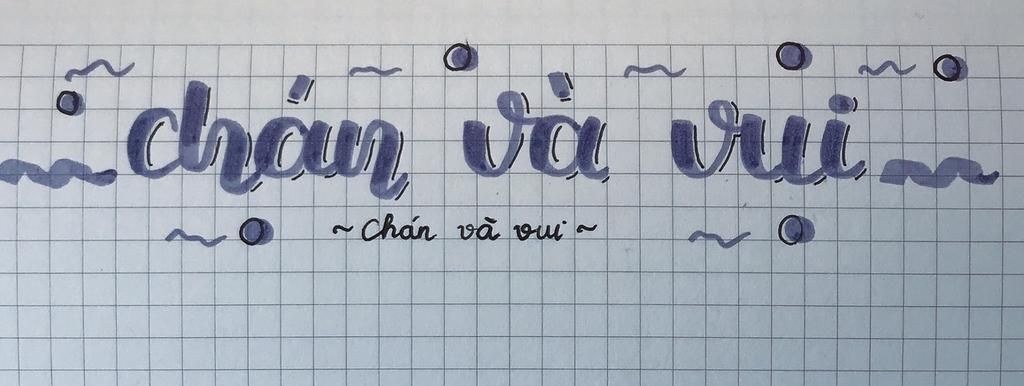 chán và vui
~ chán và vui ~